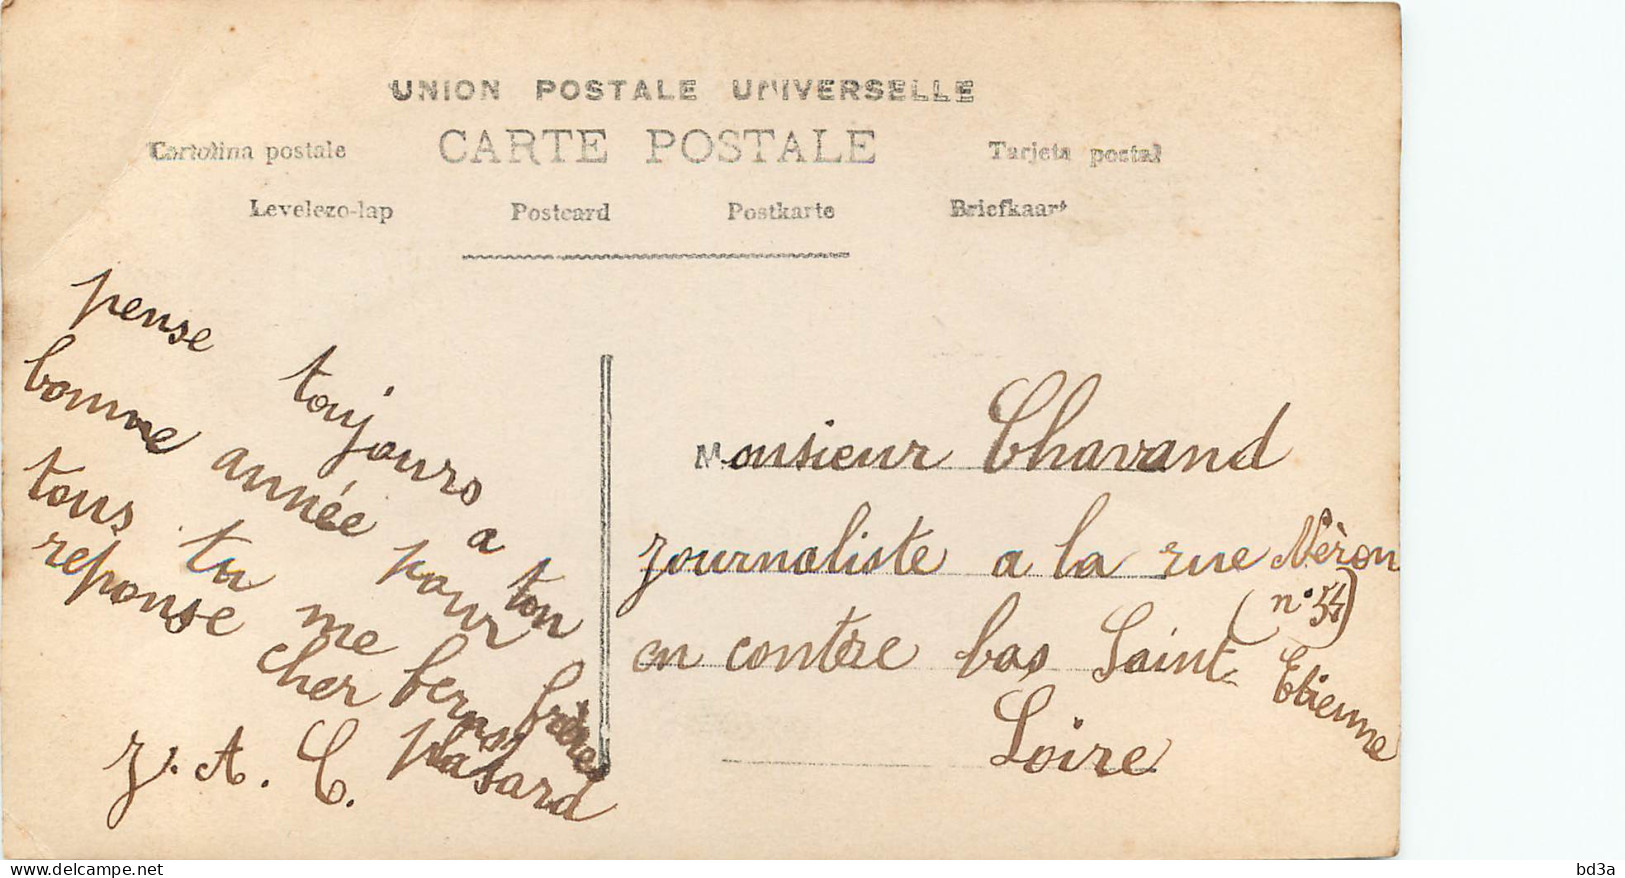 UNION POSTALE UNIVERSELLE
Cartolina postale CARTE POSTALE Tarjeta postal
Levelezo-lap Postcard Postkarte Briefkaart
pense toujours a ton frère
bonne année pour
tous tu me feras
reponse cher
J. A. C. Plasard
Monsieur Chavand
journaliste a la rue Néron
(n° 54)
en contre bas Saint-Etienne
Loire
bd3a